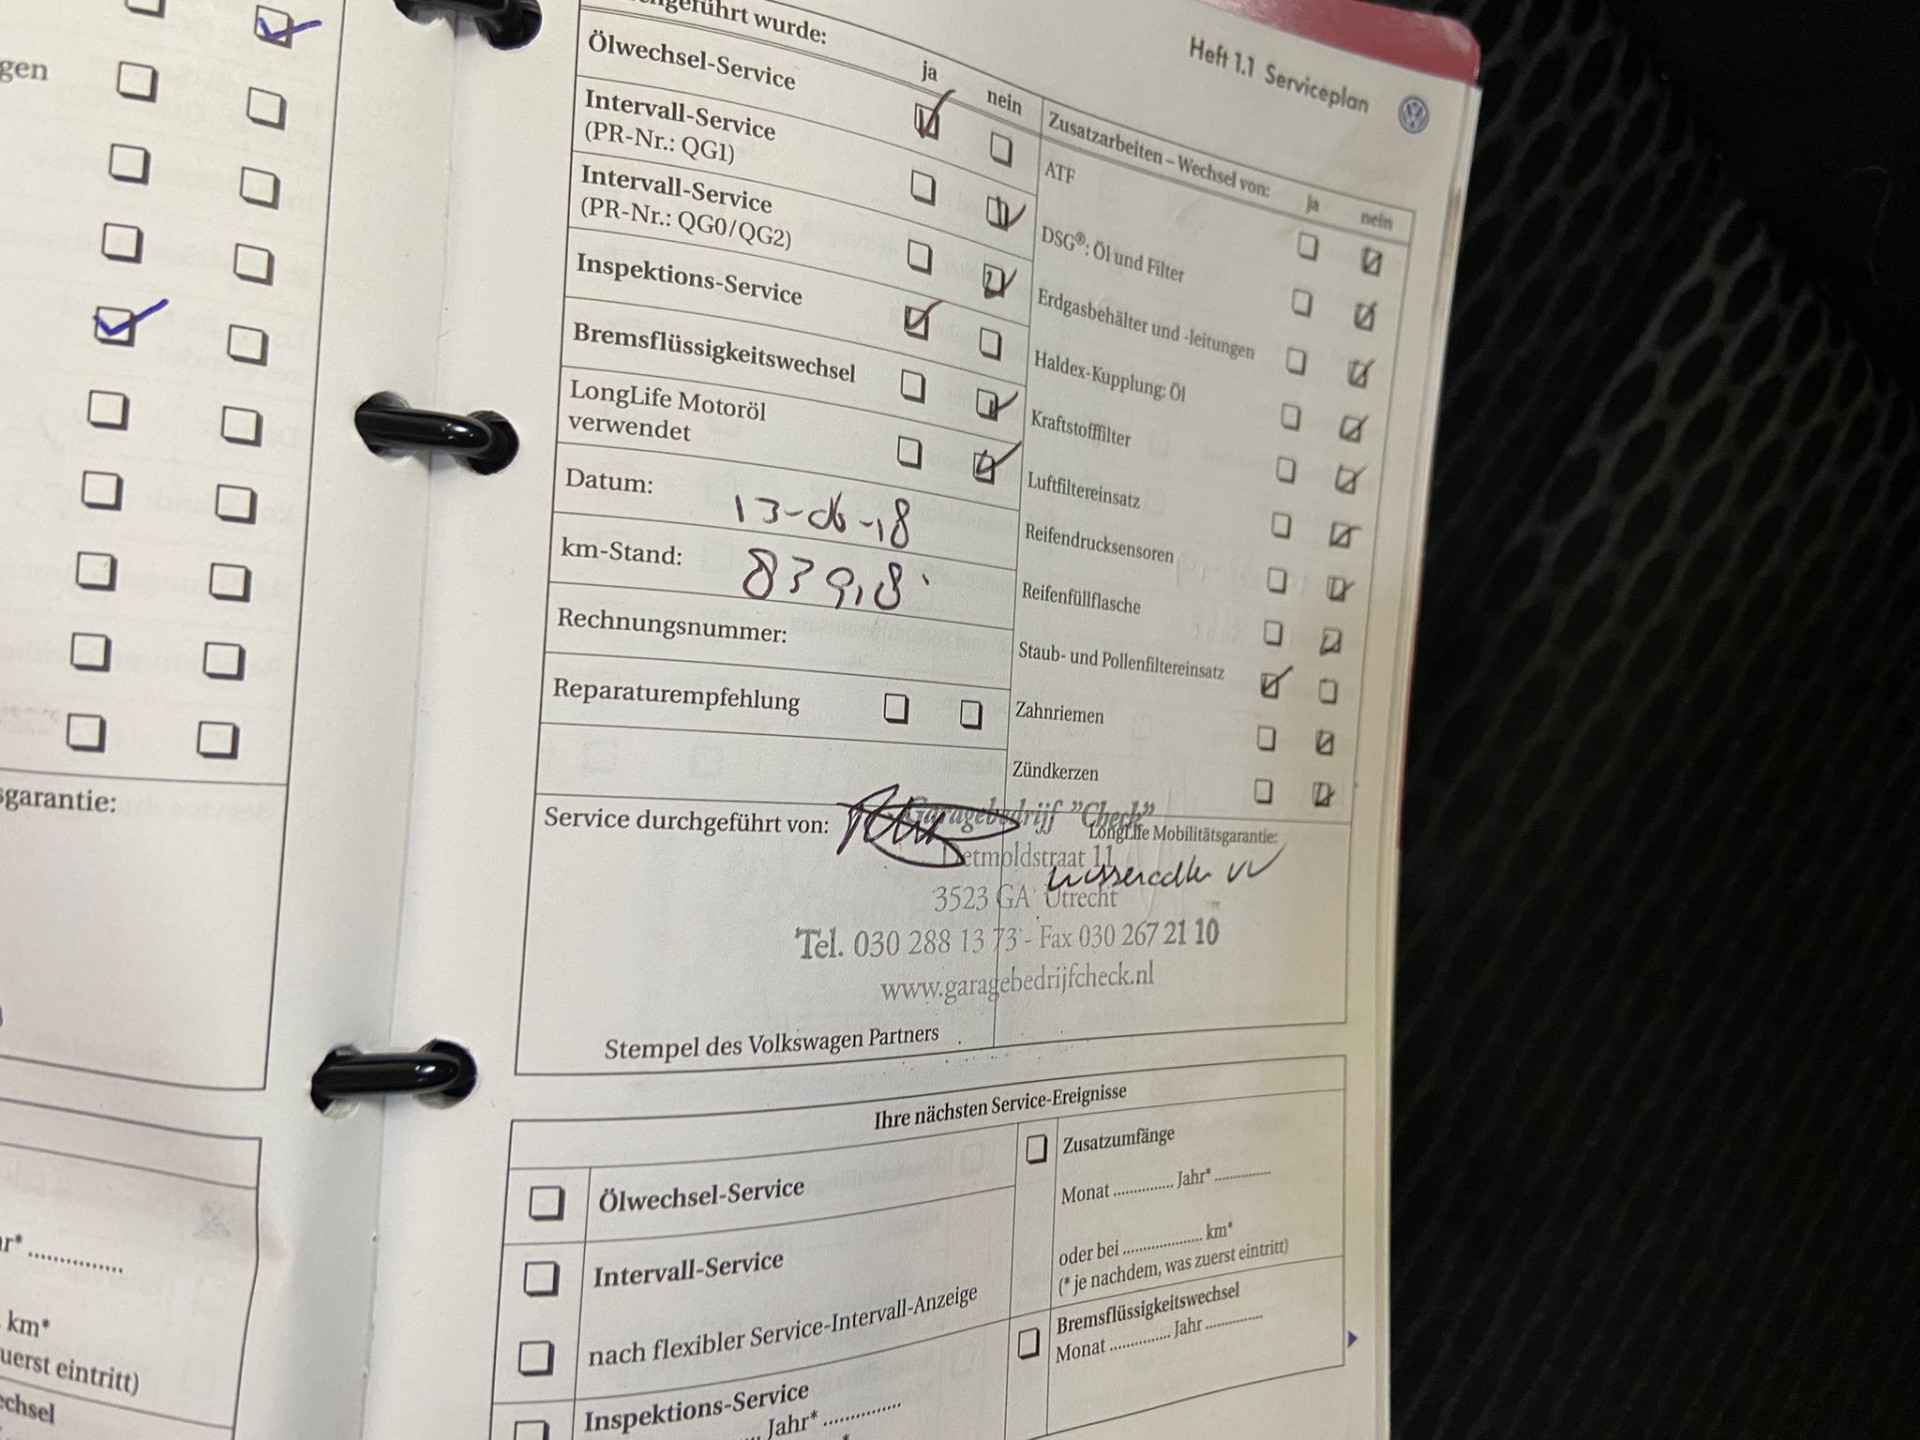 gen
sgarantie:
r* ...............
km*
uerst eintritt)
chsel
geführt wurde:
ja
nein
Ölwechsel-Service
Intervall-Service
(PR-Nr.: QG1)
Intervall-Service
(PR-Nr.: QG0/QG2)
Inspektions-Service
Bremsflüssigkeitswechsel
LongLife Motoröl
verwendet
Datum: 13-06-18
km-Stand:
Rechnungsnummer:
Reparaturempfehlung
Heft 1.1 Serviceplan
Zusatzarbeiten – Wechsel von:
ja
nein
ATF
DSG®: Öl und Filter
Erdgasbehälter und -leitungen
Haldex-Kupplung: Öl
Kraftstofffilter
Luftfiltereinsatz
Reifendrucksensoren
Reifenfüllflasche
Staub- und Pollenfiltereinsatz
Zahnriemen
Zündkerzen
Service durchgeführt von:
LongLife Mobilitätsgarantie:
Garagebedrijf "Check"
Detmoldstraat 11
3523 GA Utrecht
Tel. 030 288 13 73 - Fax 030 267 21 10
www.garagebedrijfcheck.nl
Stempel des Volkswagen Partners
Ihre nächsten Service-Ereignisse
Ölwechsel-Service
Intervall-Service
nach flexibler Service-Intervall-Anzeige
Inspektions-Service
Jahr* ...............
Zusatzumfänge
Monat ............... Jahr* ..............
oder bei .................... km*
(* je nachdem, was zuerst eintritt)
Bremsflüssigkeitswechsel
Monat ............... Jahr ...............